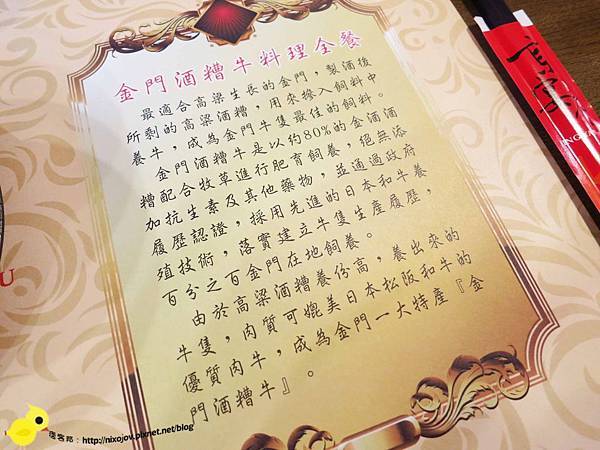 金門酒糟牛料理全餐
最適合高梁生長的金門，製酒後
所剩的高梁酒糟，用來摻入飼料中
養牛，成為金門牛隻最佳的飼料。
金門酒糟牛是以約80%的金酒酒
糟配合牧草進行肥育飼養，絕無添
加抗生素及其他藥物，並通過政府
履歷認證，採用先進的日本和牛養
殖技術，落實建立牛隻生產履歷，
百分之百金門在地飼養。
由於高梁酒糟養份高，養出來的
牛隻，肉質可媲美日本松阪和牛的
優質肉牛，成為金門一大特產『金
門酒糟牛』。
痞客邦：http://nixojov.pixnet.net/blog